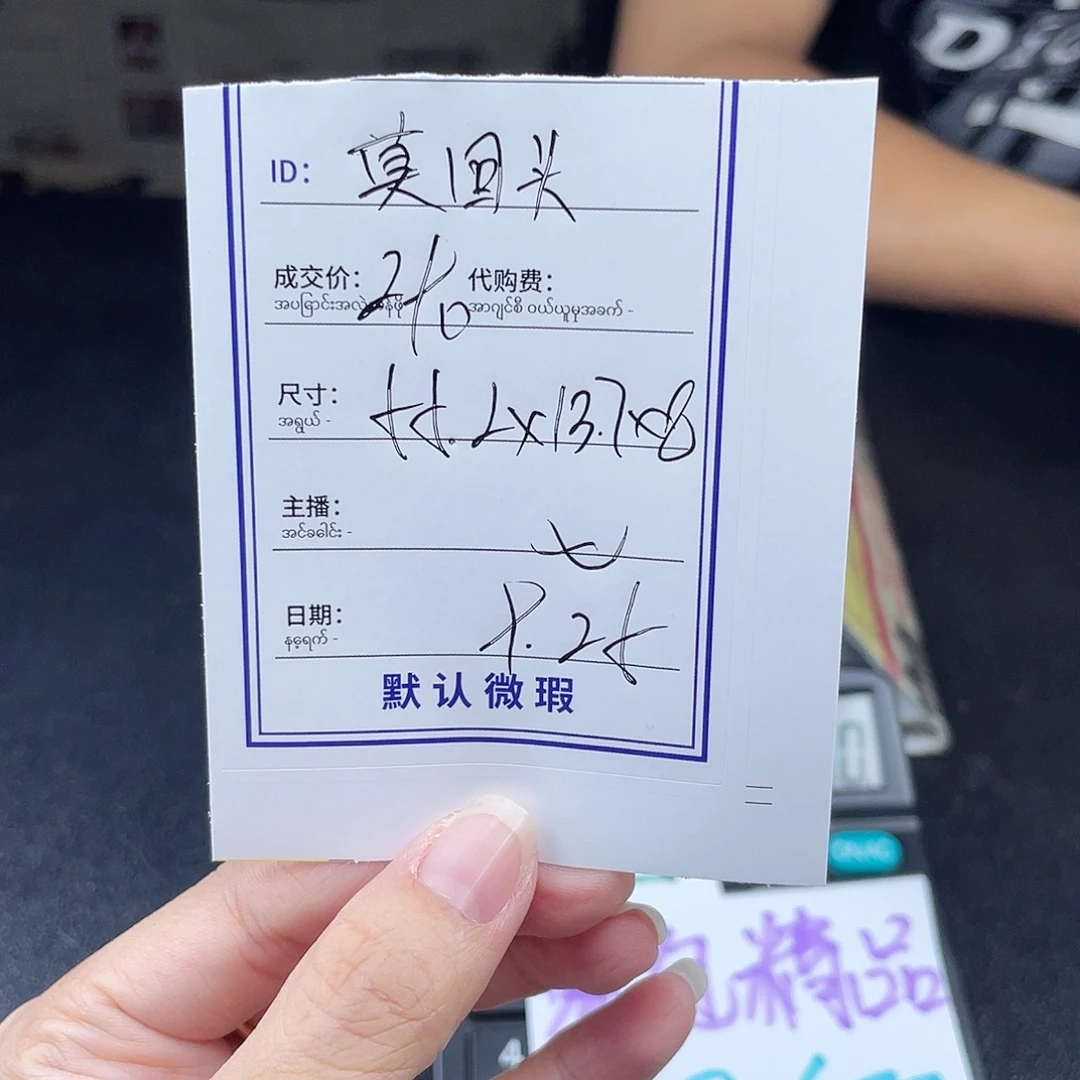 ID: 莫回头
成交价: 250 代购费:
အပြောင်းအလဲ အာဂျင်စီ ဝယ်ယူမှုအခက် -
尺寸: 55.2x13.7x8
အရွယ် -
主播:
အင်ခေါင်း -
日期: 9.25
နေ့ရက် -
默认微瑕
精品
4